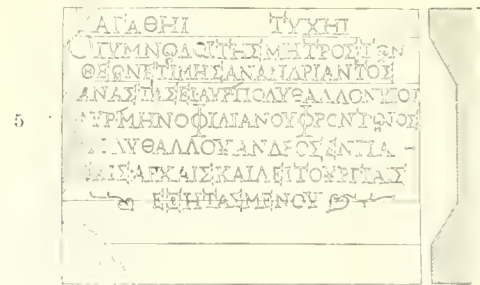 ΑΓΑΘΗΙ ΤΥΧΗΙ
ΟΙΥΜΝΩΔΟΙΤΗΣΜΗΤΡΟΣΤΩΝ
ΘΕΩΝΕΤΙΜΗΣΑΝΑΝΔΡΙΑΝΤΟΣ
ΑΝΑΣΤΑΣΕΙΑΥΡΠΟΛΥΘΑΛΛΟΝΥΙΟΝ
5 ΑΥΡΜΗΝΟΦΙΛΙΑΝΟΥΦΡΟΝΤΩΝΟΣ
ΛΥΘΑΛΛΟΥΑΝΔΡΟΣΕΝΠΑ-
ΑΙΣΑΡΧΑΙΣΚΑΙΛΕΙΤΟΥΡΓΙΑΙΣ
ΕΞΗΤΑΣΜΕΝΟΥ